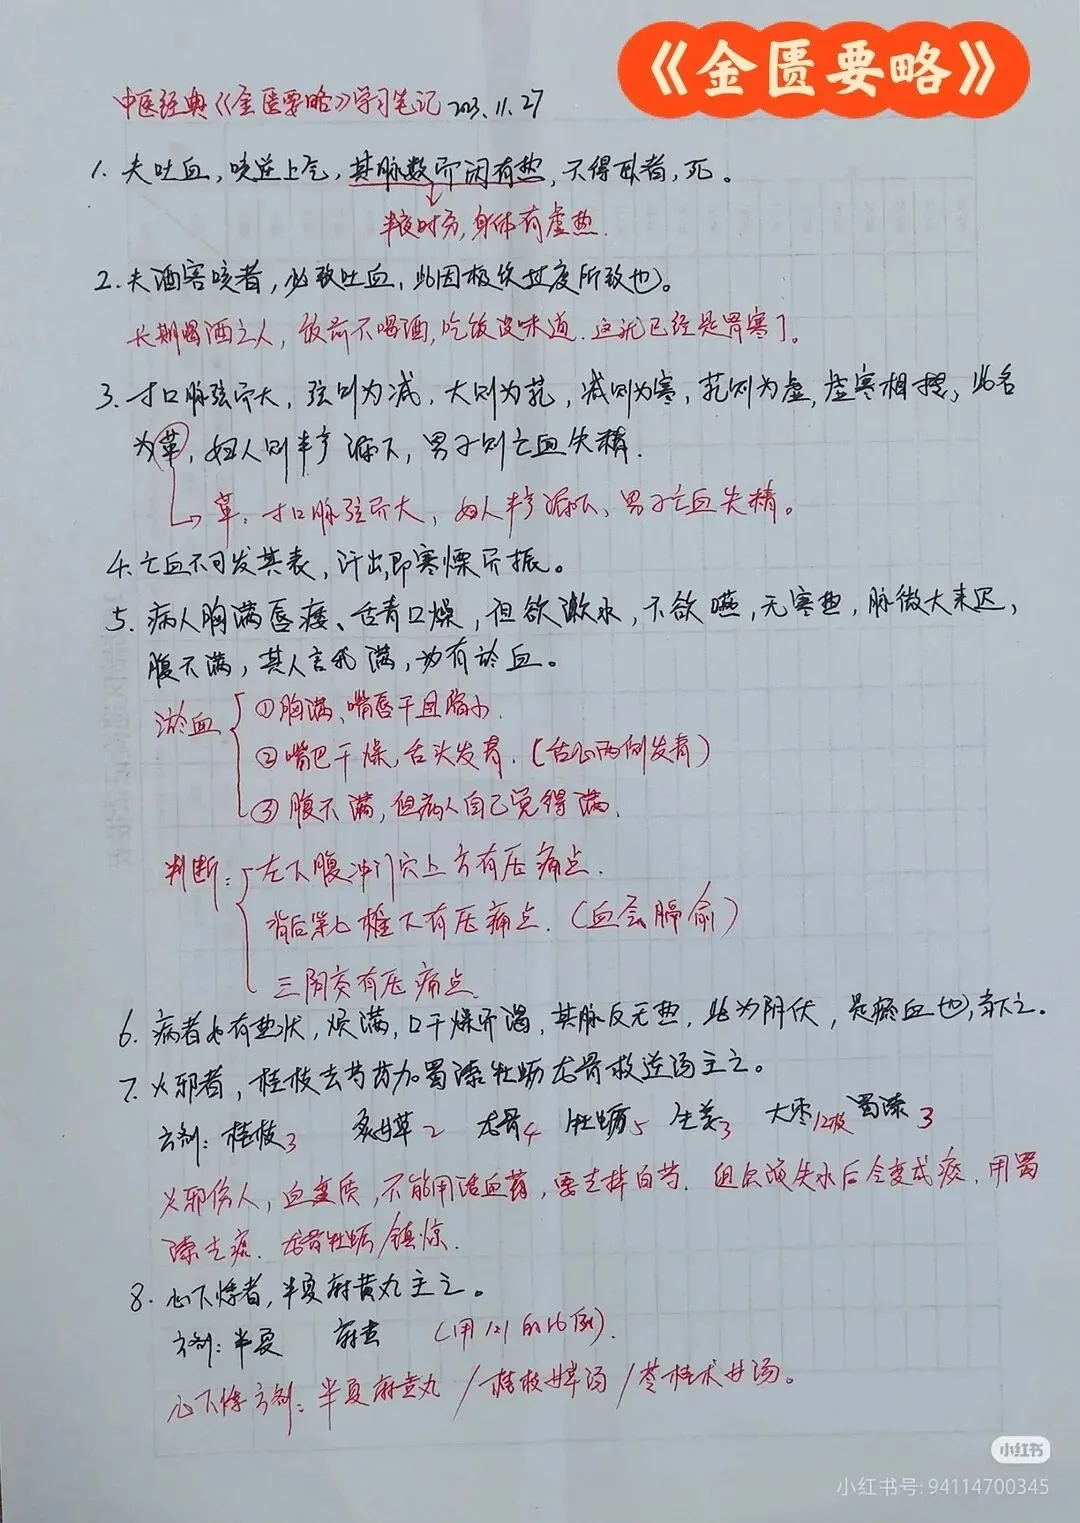 《金匮要略》
中医经典《金匮要略》学习笔记 2023.11.27
1. 夫吐血，咳逆上气，其脉数而闲有热，不得卧者，死。
半夜时分，身体有虚热.
2. 夫酒客咳者，必致吐血，此因极饮过度所致也。
长期喝酒之人，饭前不喝酒，吃饭没味道.这就已经是胃寒了。
3. 寸口脉弦而大，弦则为减，大则为芤，减则为寒，芤则为虚，虚寒相搏，此名
为革，妇人则半产漏下，男子则亡血失精.
革：寸口脉弦而大，妇人半产漏下，男子亡血失精。
4. 亡血不可发其表，汗出即寒慄而振。
5. 病人胸满唇痿、舌青口燥，但欲漱水，不欲嚥，无寒热，脉微大来迟，
腹不满，其人言我满，为有淤血。
淤血
①胸满、嘴唇干且缩小.
②嘴巴干燥，舌头发青.（舌心两侧发青）
③腹不满，但病人自己觉得满.
判断：左下腹冲门穴上方有压痛点.
背后第七椎下有压痛点.（血会膈俞）
三阴交有压痛点.
6. 病者如有热状，烦满，口干燥而渴，其脉反无热，此为阴伏，是瘀血也，当下之。
7. 火邪者，桂枝去芍药加蜀漆牡蛎龙骨救逆汤主之。
方剂：桂枝3 炙甘草2 龙骨4 牡蛎5 生姜3 大枣12枚 蜀漆3
火邪伤人，血变质，不能用活血药，要去掉白芍. 但血液失水后会变成痰，用蜀
漆去痰. 龙骨牡蛎镇惊.
8. 心下悸者，半夏麻黄丸主之。
方剂：半夏 麻黄 （用1:1的比例）.
心下悸方剂：半夏麻黄丸/桂枝甘草汤/苓桂术甘汤。
小红书
小红书号: 94114700345